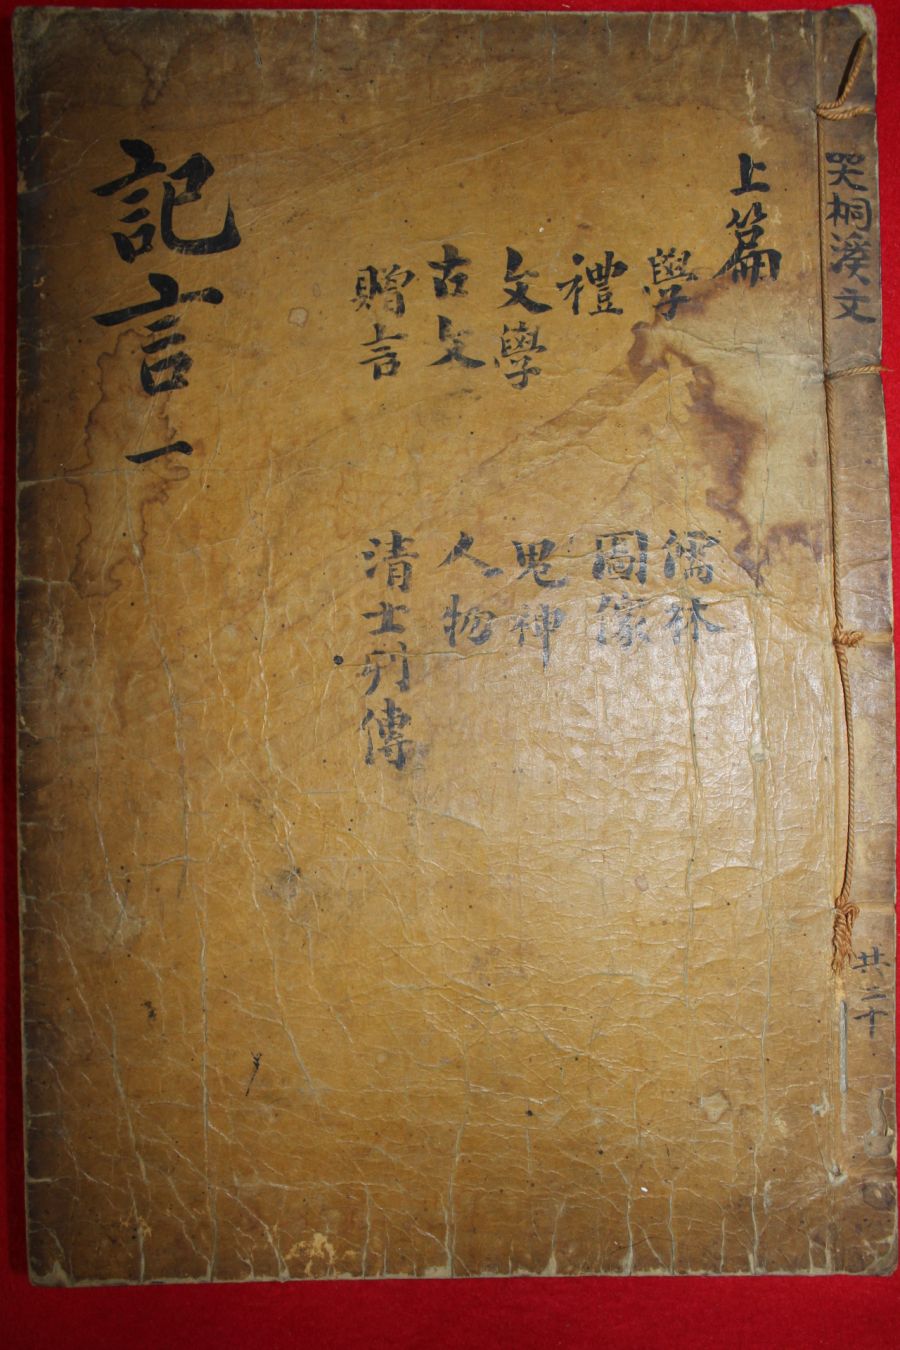 哭桐溪文
共二十
上篇
學
禮
文學
古文
贈言
儒林
圖像
鬼神
人物
清士列傳
記言 一